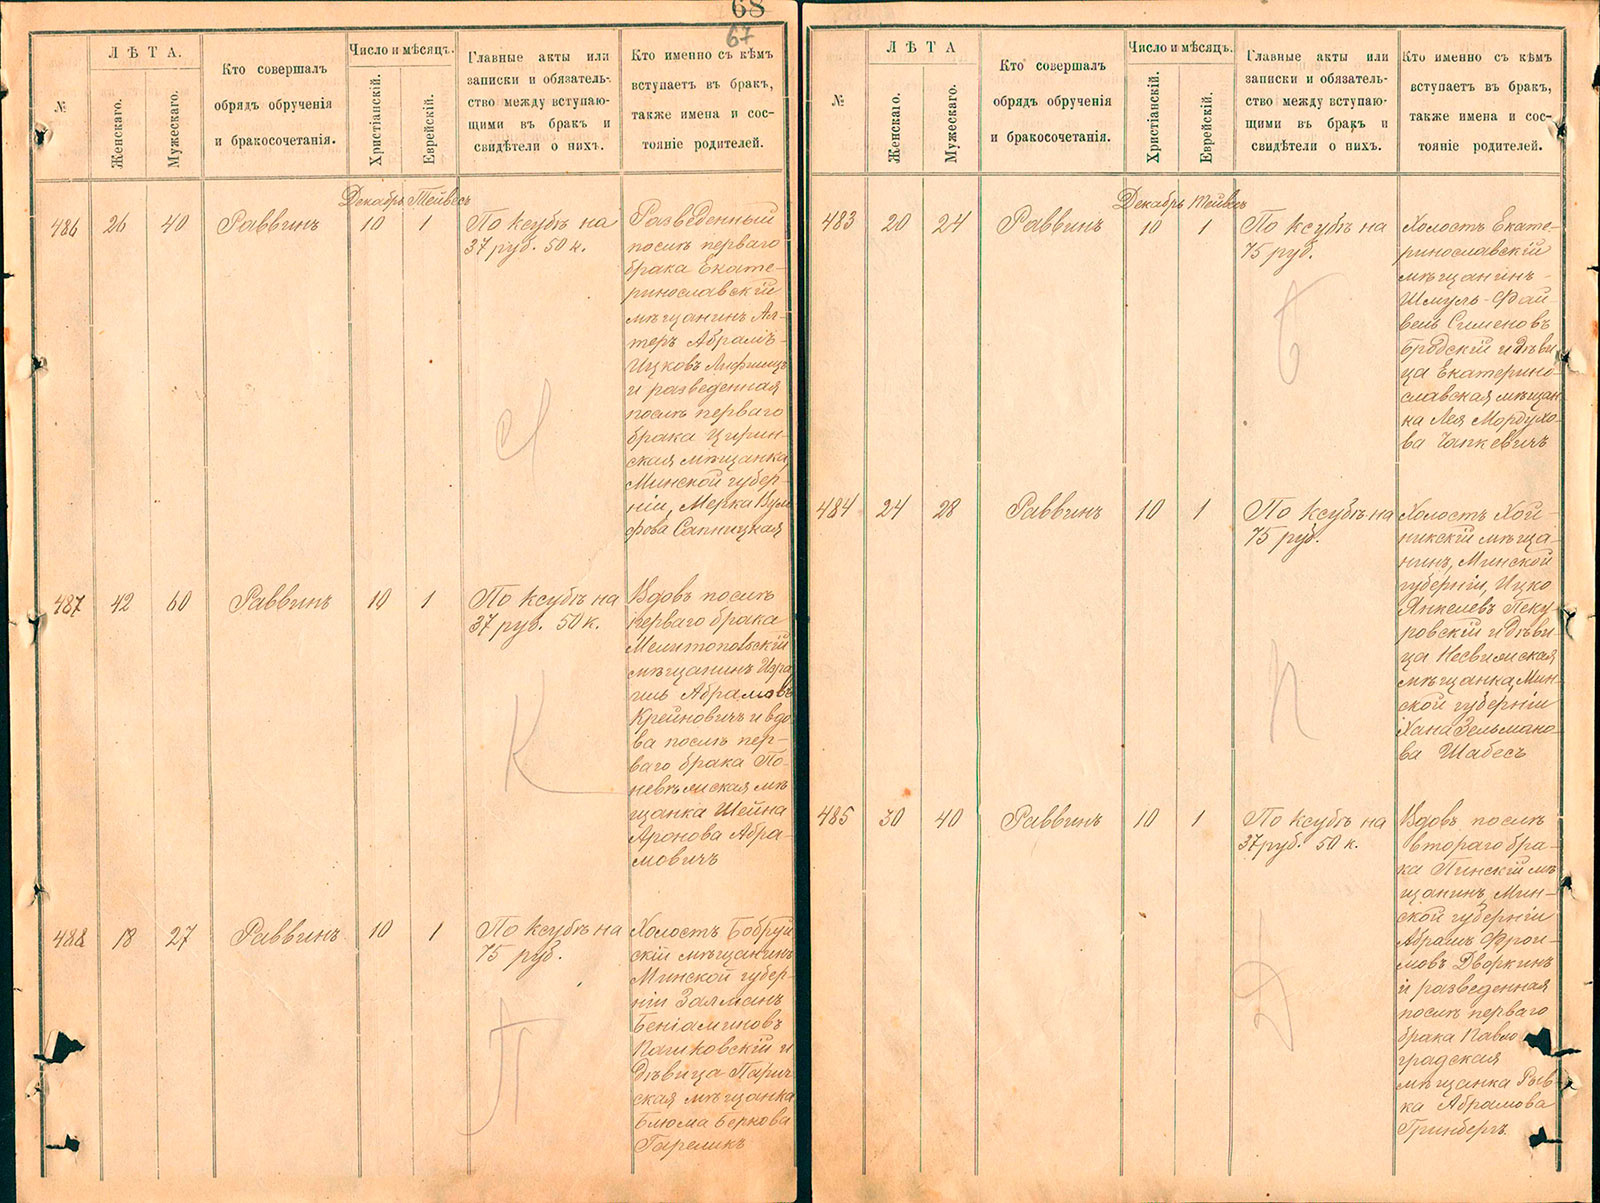 68
67
№
ЛѢТА.
Женскаго.
Мужескаго.
Кто совершалъ
обрядъ обрученія
и бракосочетанія.
Число и мѣсяцъ.
Христіанскій.
Еврейскій.
Главные акты или
записки и обязатель-
ство между вступаю-
щими въ бракъ и
свидѣтели о нихъ.
Кто именно съ кѣмъ
вступаетъ въ бракъ,
также имена и сос-
тояніе родителей.
Декабрь Тейвесъ
486 26 40 Раввинъ 10 1
По ксубѣ на
37 руб. 50 к.
Разведенный
послѣ перваго
брака Екате-
ринославскій
мѣщанинъ Ал-
теръ Абрамъ-
Ицковъ Лифшицъ
и разведенная
послѣ перваго
брака Цирин-
ская мѣщанка,
Минской губер-
ніи, Мерка Вуль
фова Сапницкая
Л
487 42 60 Раввинъ 10 1
По ксубѣ на
37 руб. 50 к.
Вдовъ послѣ
перваго брака
Мелитопольскій
мѣщанинъ Изра
иль Абрамовъ
Крейновичъ и вдо
ва послѣ пер-
ваго брака По-
невѣжская мѣ
щанка Шейна
Аронова Абра-
мовичъ
К
488 18 27 Раввинъ 10 1
По ксубѣ на
75 руб.
Холостъ Бобруй
скій мѣщанинъ
Минской губер-
ніи Залманъ
Беніаминовъ
Палковскій и
дѣвица Парич
ская мѣщанка
Блюма Беркова
Гареликъ
П
№
ЛѢТА
Женскаго.
Мужескаго.
Кто совершалъ
обрядъ обрученія
и бракосочетанія.
Число и мѣсяцъ.
Христіанскій.
Еврейскій.
Главные акты или
записки и обязатель-
ство между вступаю-
щими въ бракъ и
свидѣтели о нихъ.
Кто именно съ кѣмъ
вступаетъ въ бракъ,
также имена и сос-
тояніе родителей.
Декабрь Тейвесъ
483 20 24 Раввинъ 10 1
По ксубѣ на
75 руб.
Холостъ Екате-
ринославскій
мѣщанинъ
Шмуль-Фай-
вель Сименовъ
Бродскій и дѣви
ца Екатерино-
славская мѣщан
ка Лея Мордухо-
ва Чапкевичъ
Б
484 24 28 Раввинъ 10 1
По ксубѣ на
75 руб.
Холостъ Хой-
никскій мѣща-
нинъ, Минской
губерніи, Ицко
Янкелевъ Пеку-
ровскій и дѣви-
ца Несвижская
мѣщанка, Мин-
ской губерніи
Хана Зельмано-
ва Шабесъ
П
485 30 40 Раввинъ 10 1
По ксубѣ на
37 руб. 50 к.
Вдовъ послѣ
втораго бра-
ка Пинскій мѣ
щанинъ, Мин-
ской губерніи
Абрамъ Фрои-
мовъ Дворкинъ
и разведенная
послѣ перваго
брака Павло
градская
мѣщанка Рив-
ка Абрамова
Гринбергъ.
Д